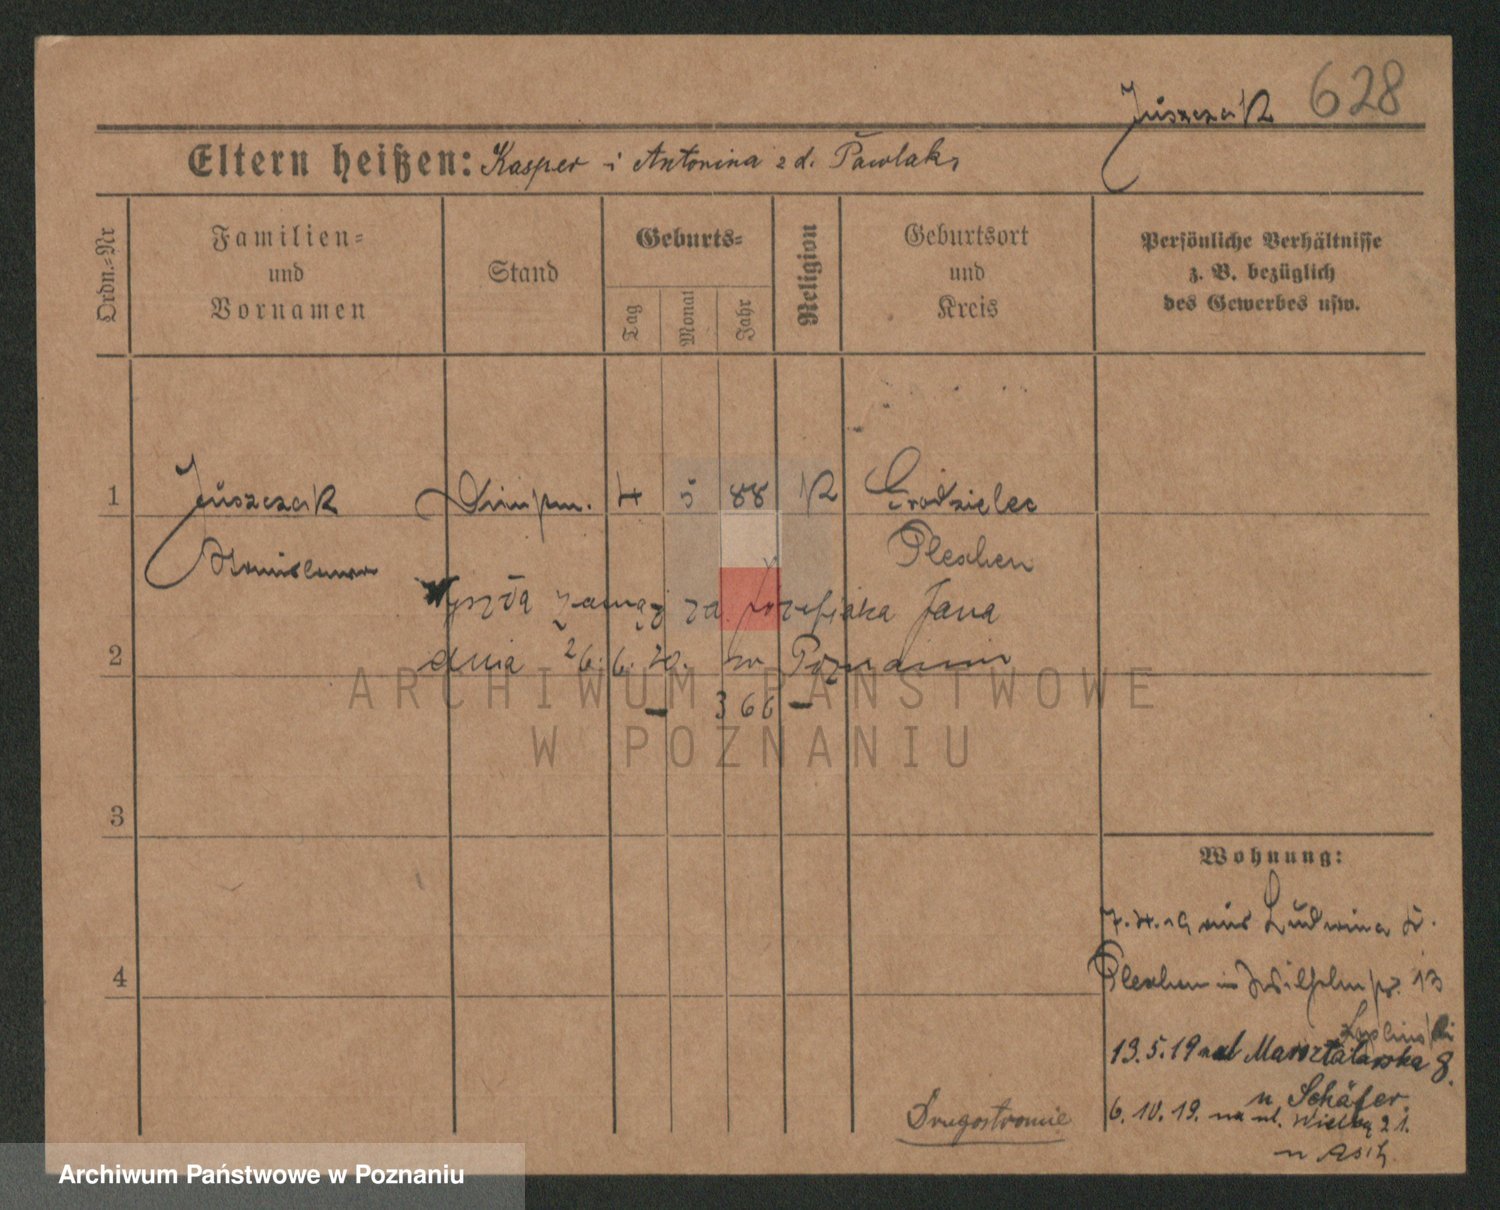 628
Juszczak
Eltern heißen: Kasper i Antonina z d. Pawlak
Ordn.-Nr
Familien- und Vornamen
Stand
Geburts-
Tag
Monat
Jahr
Religion
Geburtsort und Kreis
Persönliche Verhältnisse z. B. bezüglich des Gewerbes usw.
1 Juszczak 4 5 88 K Grodzielec
Pleschen
Wyszła zamąż za Józefiaka Jana
2 dnia 26.6.20. w Poznaniu
— 366 —
ARCHIWUM PAŃSTWOWE
W POZNANIU
3
Wohnung:
7.4.19 aus Ludwina Kr.
4
Pleschen in Wilhelmstr. 13
13.5.19 na ul Masztalarska 8.
u Schäfer.
6.10.19. na ul. Wielką 21.
u Asch.
Drugostronnie
Archiwum Państwowe w Poznaniu